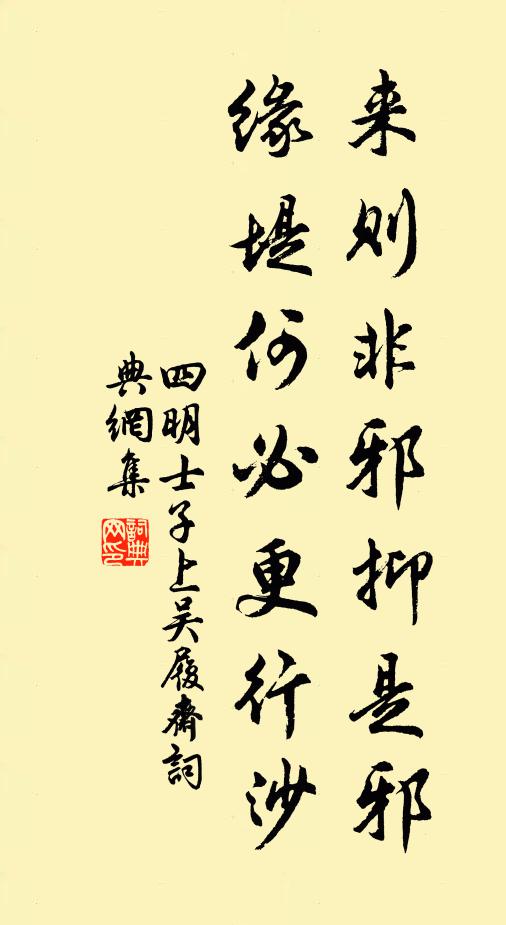 来则非邪抑是邪
缘堤何必更行沙
四明士子上吴履斋词
典網集
詞典网印